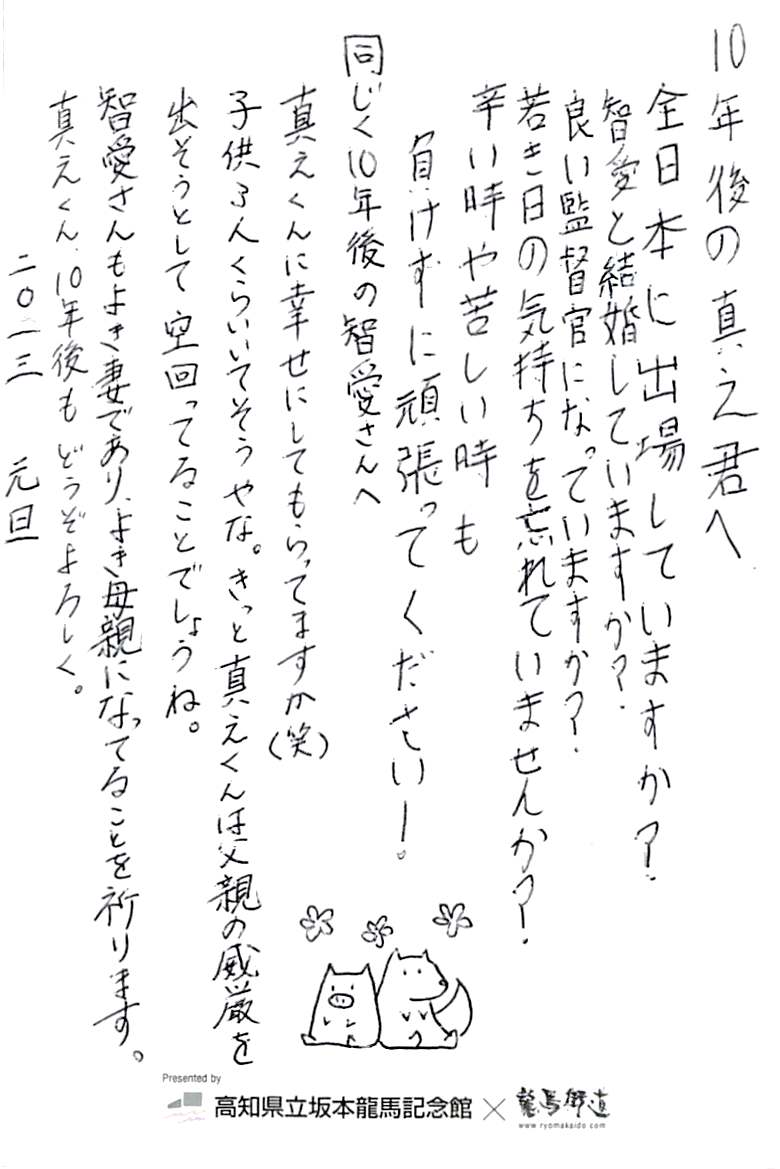 10年後の真え君へ
全日本に出場していますか?
智愛と結婚していますか?
良い監督官になっていますか?
若き日の気持ちを忘れていませんか?
辛い時や苦しい時も
負けずに頑張ってください!
同じく10年後の智愛さんへ
真えくんに幸せにしてもらってますか(笑)
子供3人くらいいてそうやな。きっと真えくんは父親の威厳を
出そうとして空回ってることでしょうね。
智愛さんもよき妻であり、よき母親になってることを祈ります。
真えくん、10年後もどうぞよろしく。
二〇一三 元旦
Presented by
高知県立坂本龍馬記念館×龍馬街道
www.ryomakaido.com